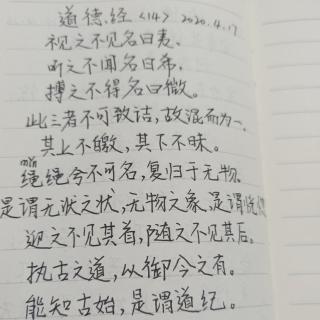 道德经 <14> 2020.4.17
视之不见名曰夷。
听之不闻名曰希。
搏之不得名曰微。
此三者不可致诘,故混而为一。
其上不皦,其下不昧。
mǐn
绳绳兮不可名,复归于无物。
是谓无状之状,无物之象,是谓恍惚
迎之不见其首,随之不见其后。
执古之道,以御今之有。
能知古始,是谓道纪。